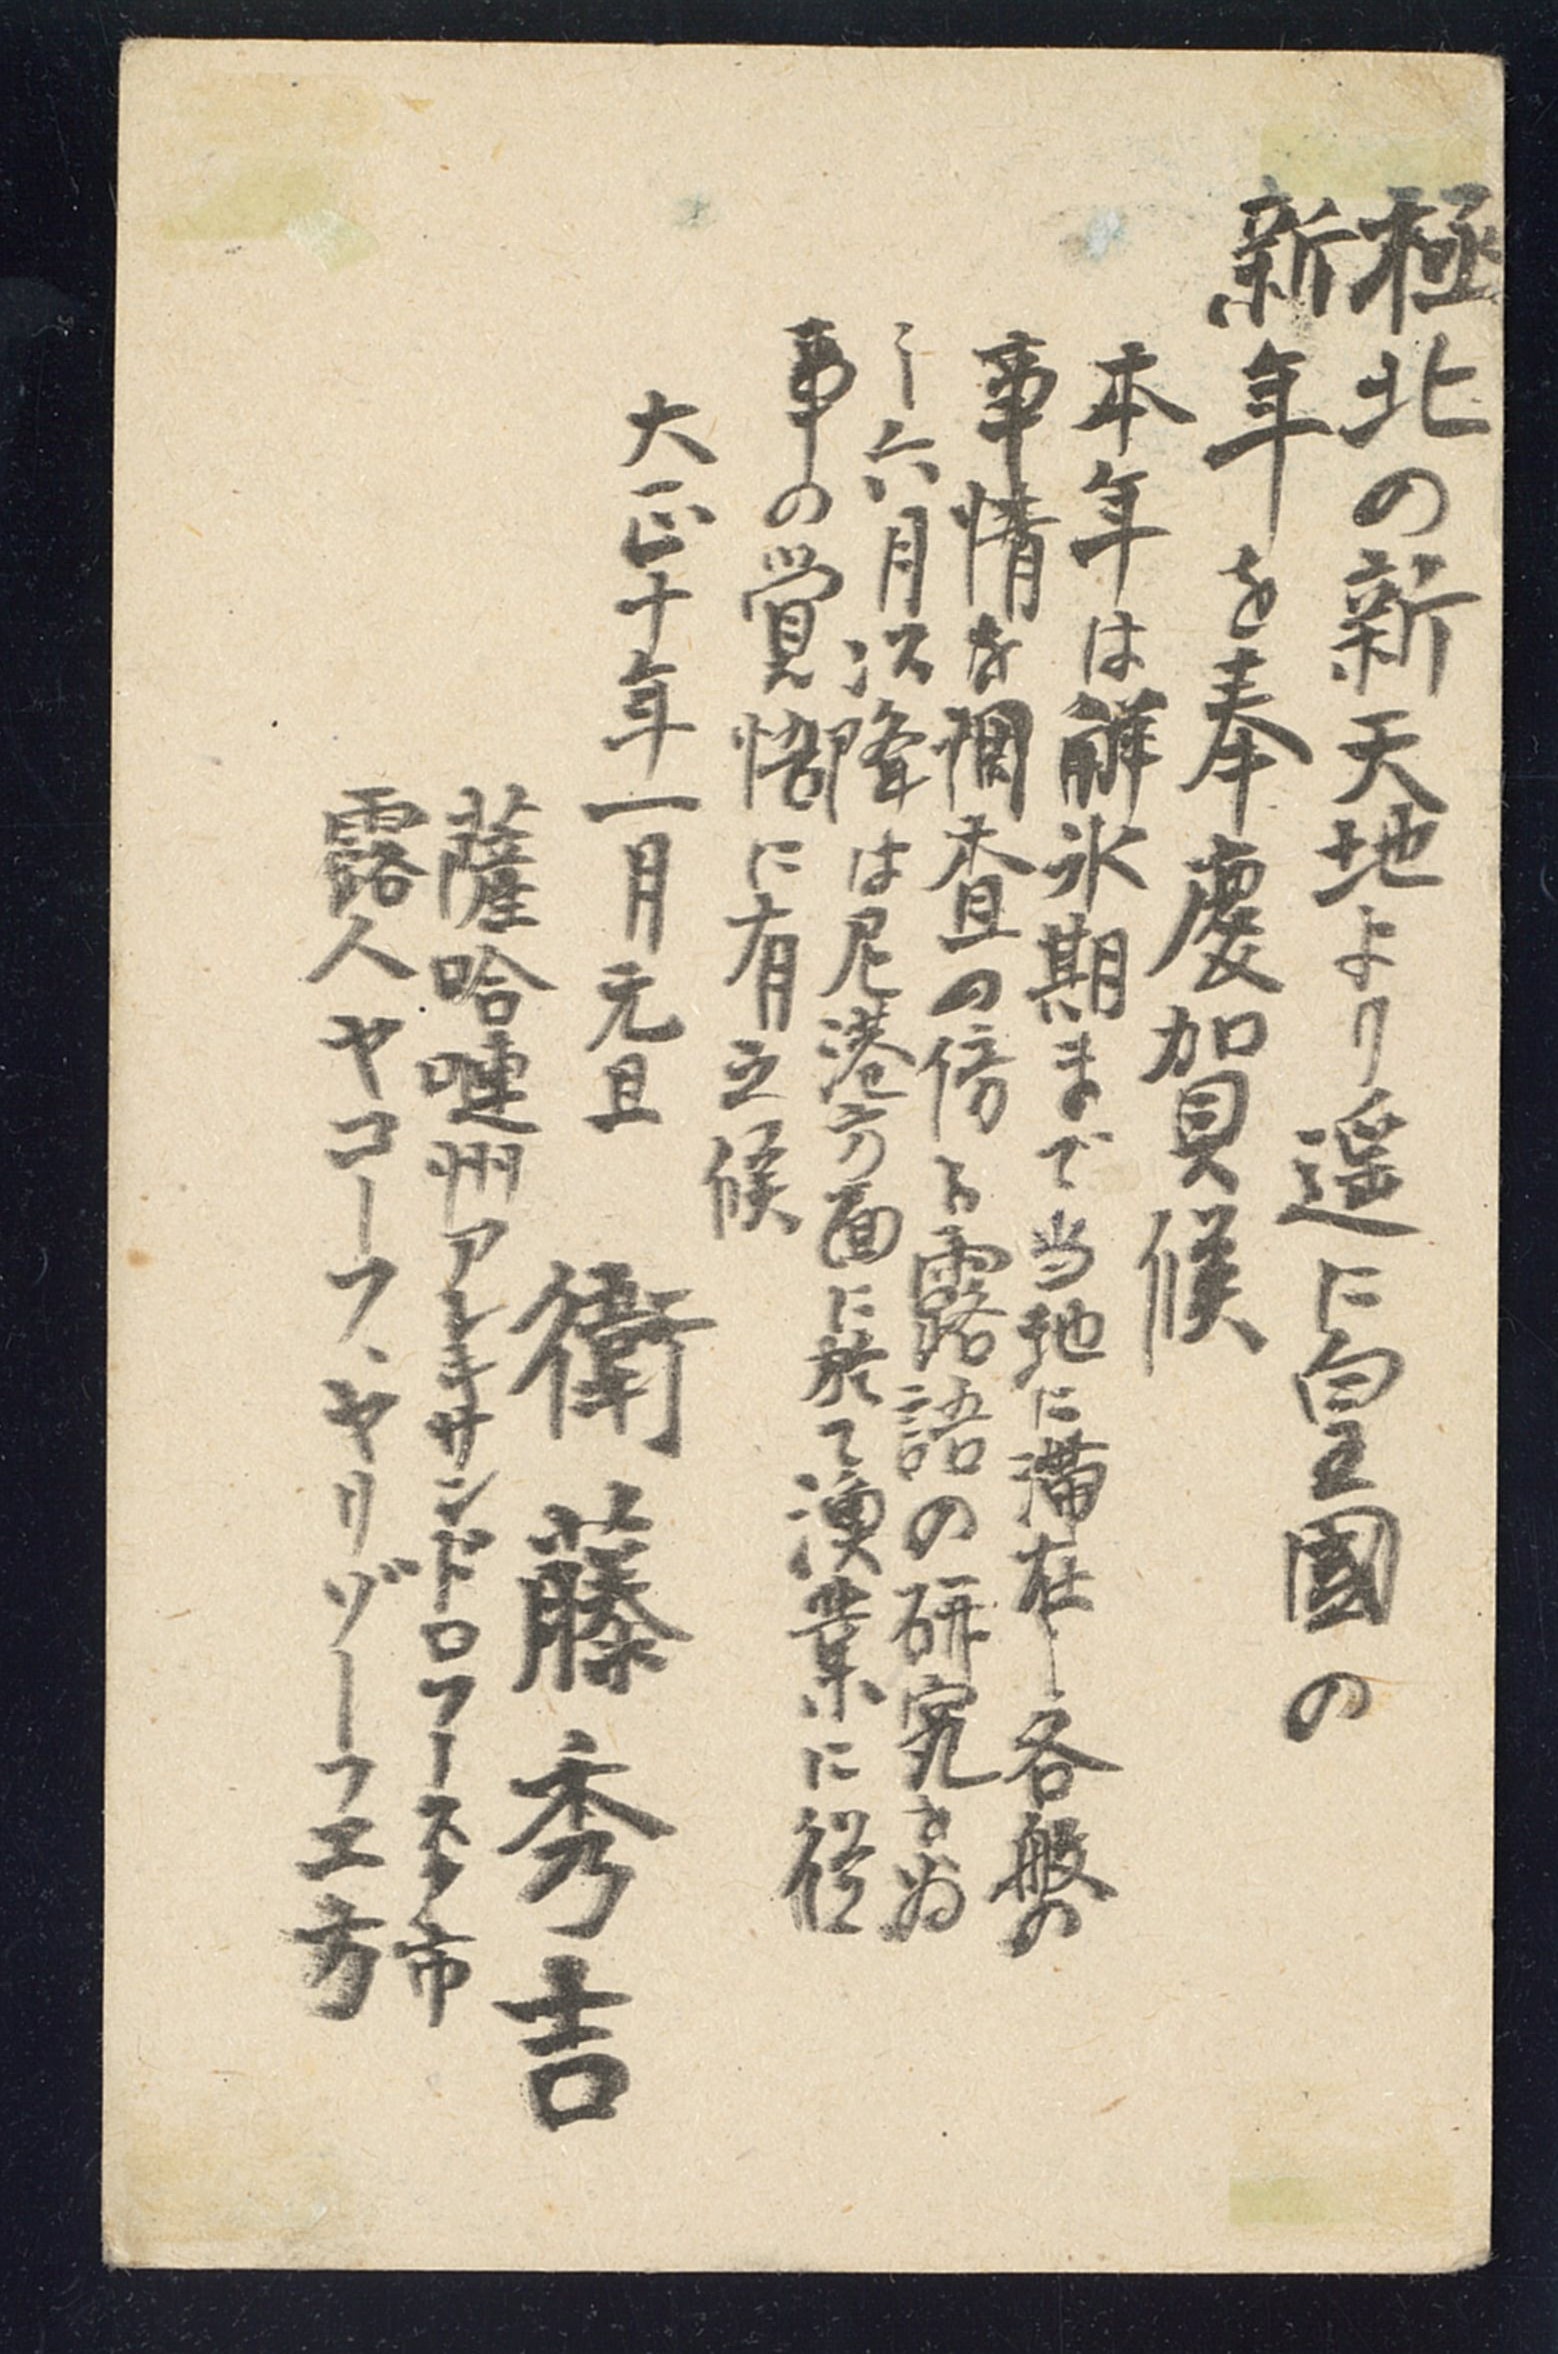 極北の新天地より遥に皇國の
新年を奉慶賀候
本年は解氷期まで当地に滞在し各般の
事情を調査の傍ら露語の研究を為
し六月以降は尼港方面に於て漁業に従
事の覚悟に有之候
大正十年一月元旦
衛藤秀吉
薩哈嗹州アレキサンドロフースク市
露人ヤコーフ、ヤリゾーフエ方